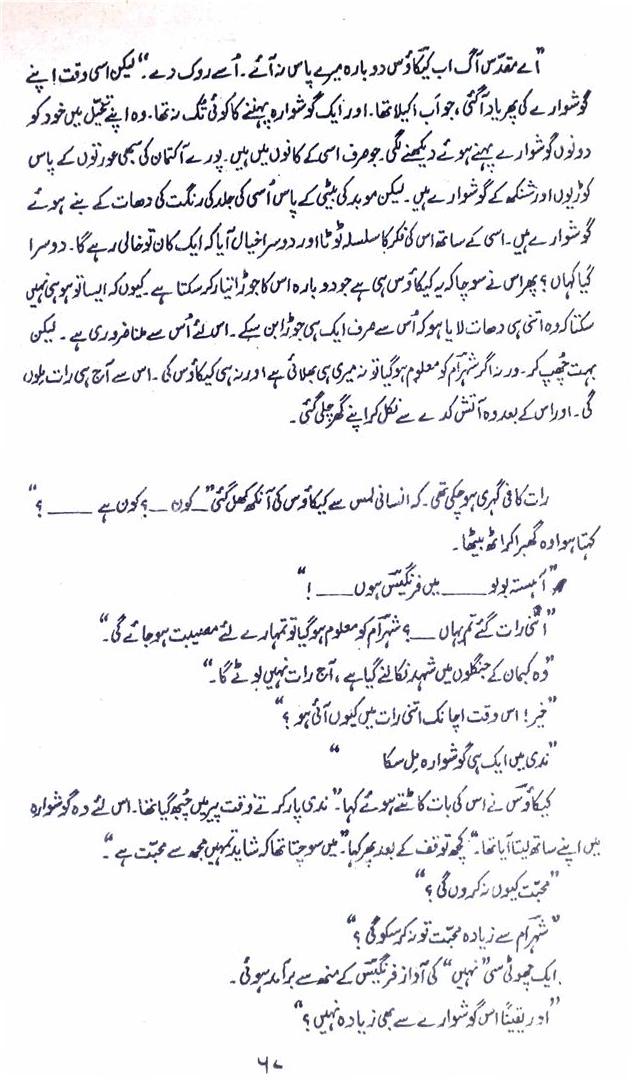 "اے مقدّس آگ اب کیکاؤس دوبارہ میرے پاس نہ آئے۔ اُسے روک دے۔" لیکن اسی وقت اپنے
گوشوارے کی پھر یاد آ گئی، جو اَب اکیلا تھا۔ اور ایک گوشوارہ پہننے کا کوئی تُک نہ تھا۔ وہ اپنے تخیّل میں خود کو
دونوں گوشوارے پہنے ہوئے دیکھنے لگی۔ جو صرف اسی کے کانوں میں ہیں۔ پورے آکتمان کی سبھی عورتوں کے پاس
کوڑیوں اور شنکھ کے گوشوارے ہیں۔ لیکن موبد کی بیٹی کے پاس اُسی کی جلد کی رنگت کی دھات کے بنے ہوئے
گوشوارے ہیں۔ اسی کے ساتھ اس کی فکر کا سلسلہ ٹوٹا اور دوسرا خیال آیا کہ ایک کان تو خالی رہے گا۔ دوسرا
گیا کہاں؟ پھر اس نے سوچا کہ یہ کیکاؤس ہی ہے جو دوبارہ اس کا جوڑا تیار کر سکتا ہے۔ کیوں کہ ایسا تو ہو ہی نہیں
سکتا کہ وہ اتنی ہی دھات لایا ہو کہ اُس سے صرف ایک ہی جوڑا بن سکے۔ اس لئے اُس سے ملنا ضروری ہے۔ لیکن
بہت چُھپ کر۔ ورنہ اگر شہرآم کو معلوم ہو گیا تو نہ میری ہی بھلائی ہے اور نہ ہی کیکاؤس کی۔ اس سے آج ہی رات ملوں
گی۔ اور اس کے بعد وہ آتش کدے سے نکل کر اپنے گھر چلی گئی۔
رات کافی گہری ہو چکی تھی۔ کہ انسانی لمس سے کیکاؤس کی آنکھ کھل گئی "کون __؟ کون ہے ____ ؟"
کہتا ہوا وہ گھبرا کر اٹھ بیٹھا۔
"آہستہ بولو ____ میں فرنگیس ہوں ____ !"
"اتنی رات گئے تم یہاں __؟ شہرآم کو معلوم ہو گیا تو تمہارے لئے مصیبت ہو جائے گی۔"
"وہ کہمان کے جنگلوں میں شہد نکالنے گیا ہے، آج رات نہیں لوٹے گا۔"
"خیر! اس وقت اچانک اتنی رات میں کیوں آئی ہو؟"
"ندی میں ایک ہی گوشوارہ مِل سکا "
کیکاؤس نے اس کی بات کاٹتے ہوئے کہا۔ "ندی پار کرتے وقت پیر میں چُبھ گیا تھا۔ اس لئے وہ گوشوارہ
میں اپنے ساتھ لیتا آیا تھا۔" کچھ توقف کے بعد پھر کہا۔ "میں سوچتا تھا کہ شاید تمہیں مجھ سے محبّت ہے۔"
"محبّت کیوں نہ کروں گی؟"
"شہرآم سے زیادہ محبّت تو نہ کر سکو گی؟"
ایک چھوٹی سی "نہیں" کی آواز فرنگیس کے منھ سے برآمد ہوئی۔
"اور یقیناً اس گوشوارے سے بھی زیادہ نہیں؟"
۶۷